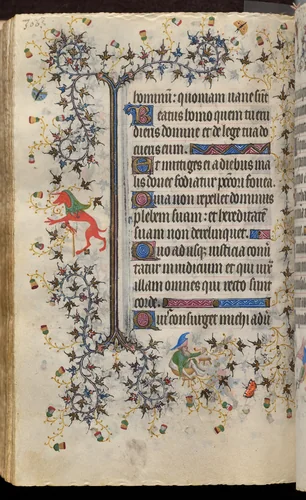 hominum: quoniam uane sunt
Beatus homo quem tu eru
dieris domine et de lege tua do
cueris eum.
Et mittiges ei a diebus ma
lis donec fodiatur peccatori fouea.
Quia non repellet dominus
plebem suam: et hereditatem
suam non derelinquet.
Quo ad usque iusticia conuer
tatur in iudicium et qui iuxta
illam omnes qui recto sunt
corde.
Quis consurget michi adu